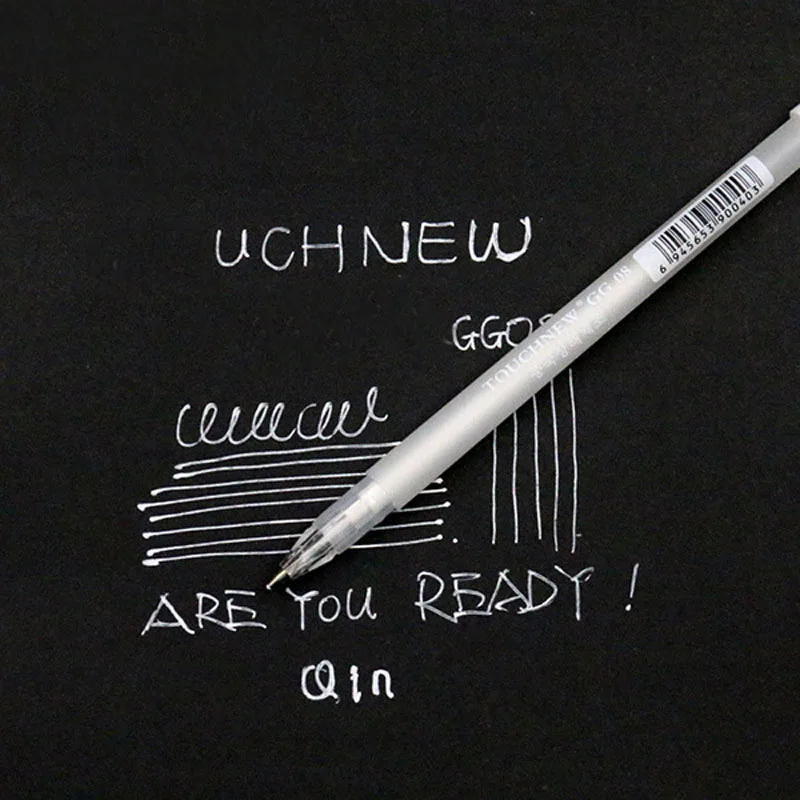 UCHNEW
6 945653 900403
GGO
TOUCHNEW® GG 08
ARE YOU READY !
Qin